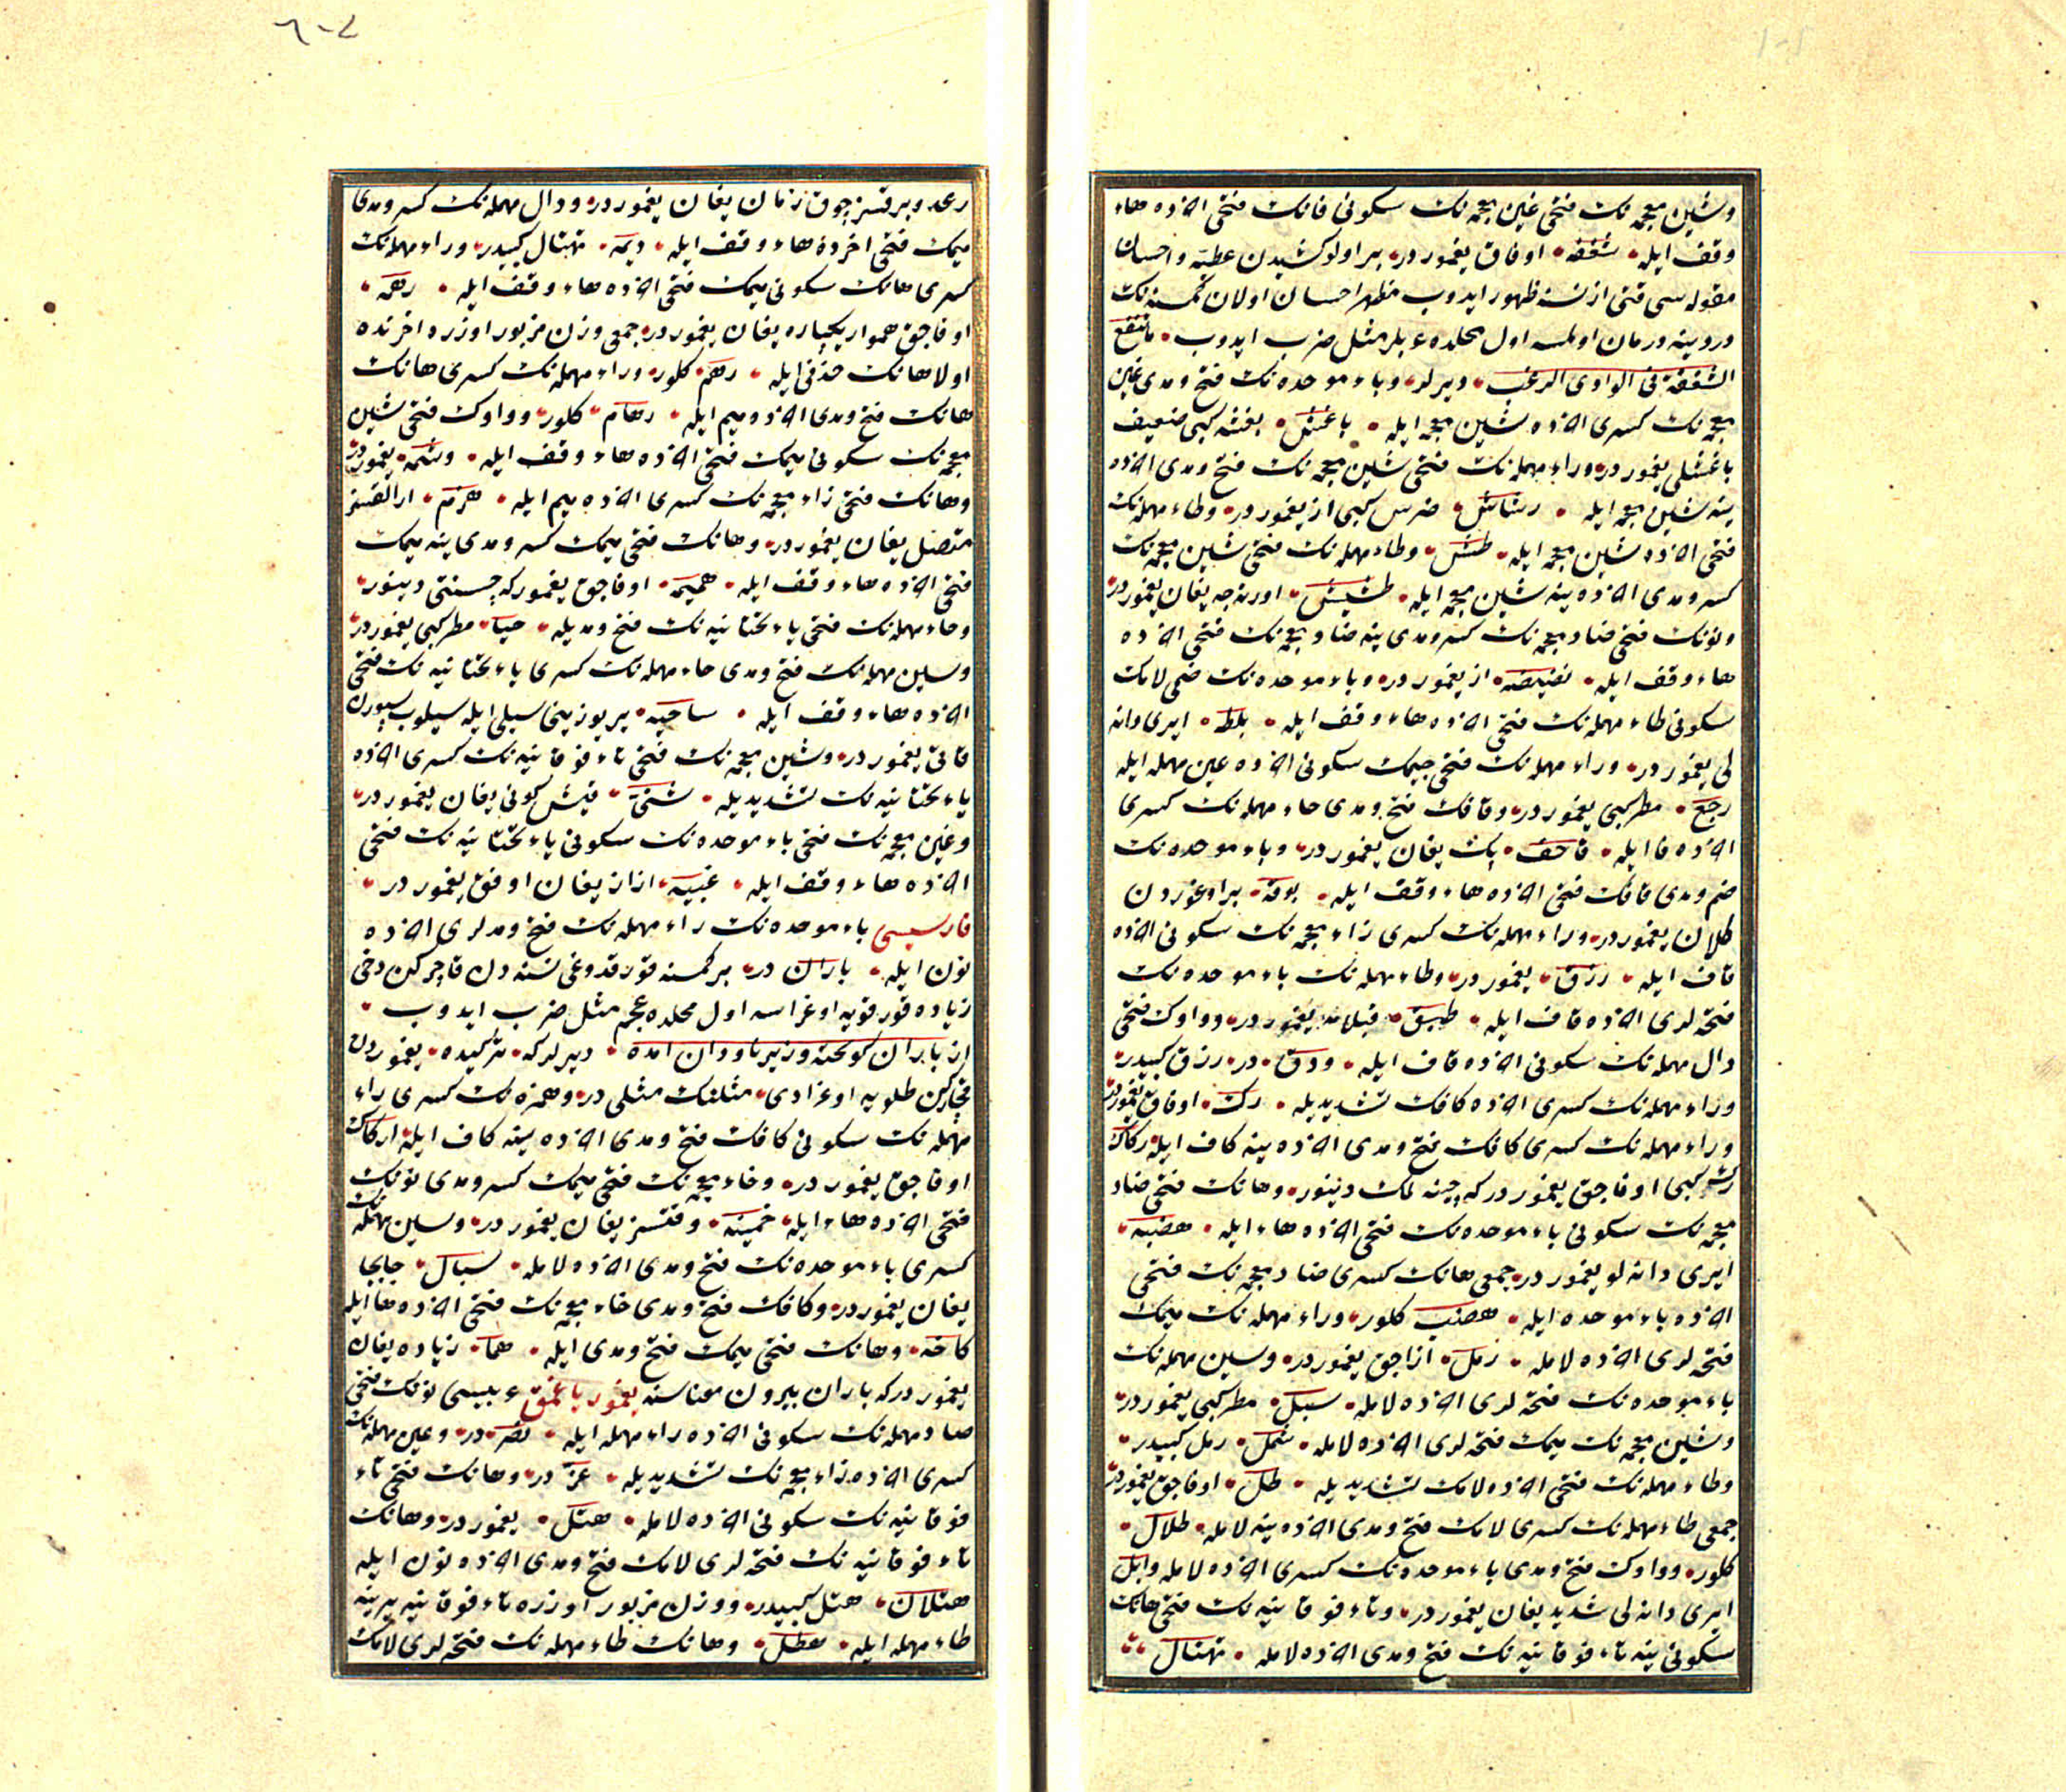 وشین معجمه‌نك فتحی غین معجمه‌نك سکونی فانك فتحی اخرده هاء
وقف ایله شغفه اوفاق یغموردر بر اولو کشیدن عطیه واحسان
مقوله‌سی قتی از نسنه ظهور ایدوب مظهر احسان اولان کمسنه‌نك
دردینه درمان اولمسه اول محلده عربلر مثل ضرب ایدوب ما تنفع
الشغفة فی الوادی الرغب دیرلر وباء موحده‌نك فتح ومدی غین
معجمه‌نك کسری اخرده شین معجمه ایله باغش بغشه کبی ضعیف
یاغمشلی یغموردر وراء مهمله‌نك فتحی شین معجمه‌نك فتح ومدی اخرده
ینه شین معجمه ایله رشاش ضرس کبی از یغموردر وطاء مهمله‌نك
فتحی اخرده شین معجمه ایله طش وطاء مهمله‌نك فتحی شین معجمه‌نك
کسر ومدی اخرده ینه شین معجمه ایله طشیش اورته‌جه یغان یغموردر
ونونك فتحی ضاد معجمه‌نك کسر ومدی ینه ضاد معجمه‌نك فتحی اخرده
هاء وقف ایله نضیضه از یغموردر وباء موحده‌نك ضمی لامك
سکونی طاء مهمله‌نك فتحی اخرده هاء وقف ایله بلطه ایری دانه
لی یغموردر وراء مهمله‌نك فتحی جیمك سکونی اخرده عین مهمله ایله
رجع مطر کبی یغموردر وقافك فتح ومدی حاء مهمله‌نك کسری
اخرده فا ایله قاحف پك یغان یغموردر وباء موحده‌نك
ضم ومدی قافك فتحی اخرده هاء وقف ایله بوقه بر اوغوردن
کلان یغموردر وراء مهمله‌نك کسری زاء معجمه‌نك سکونی اخرده
قاف ایله رزق یغموردر وطاء مهمله‌نك باء موحده‌نك
فتحه‌لری اخرده قاف ایله طبق یغموردر وواوك فتحی
دال مهمله‌نك سکونی اخرده قاف ایله ودق در رزق کبیدر
وراء مهمله‌نك کسری اخرده کافك تشدیدیله رك اوفاق یغموردر
وراء مهمله‌نك کسری کافك فتح ومدی اخرده ینه کاف ایله رکاك
رش کبی اوفاجق یغموردر که چینه‌لمك دینور وهانك فتحی ضاد
معجمه‌نك سکونی باء موحده‌نك فتحی اخرده هاء ایله هضبه
ایری دانه‌لو یغموردر جمعی هانك کسری ضاد معجمه‌نك فتحی
اخرده باء موحده ایله هضب کلور وراء مهمله‌نك میمك
فتحه‌لری اخرده لامله رمل ازاجق یغموردر وسین مهمله‌نك
باء موحده‌نك فتحه‌لری اخرده لامله سبل مطر کبی یغموردر
وشین معجمه‌نك میمك فتحه‌لری اخرده لامله شمل رمل کبیدر
وطاء مهمله‌نك فتحی اخرده لامك تشدیدیله طل اوفاجق یغموردر
جمعی طاء مهمله‌نك کسری لامك فتح ومدی اخرده ینه لامله طلال
کلور وواوك فتح ومدی باء موحده‌نك کسری اخرده لامله وابل
ایری دانه‌لی شدید یغان یغموردر وتاء فوقانیه‌نك فتحی هانك
سکونی ینه تاء فوقانیه‌نك فتح ومدی اخرده لامله تهتال
رعد وبرقسز چوق زمان یغان یغموردر ودال مهمله‌نك کسر ومدی
میمك فتحی اخرده هاء وقف ایله دیمه تهتال کبیدر وراء مهمله‌نك
کسری هانك سکونی میمك فتحی اخرده هاء وقف ایله رهمه
اوفاجق هموار یکپاره یغان یغموردر جمعی وزن مزبور اوزره اخرنده
اولا هانك حذفی ایله رهم کلور وراء مهمله‌نك کسری هانك
هانك فتح ومدی اخرده میم ایله رهام کلور وواوك فتحی شین
معجمه‌نك سکونی میمك فتحی اخرده هاء وقف ایله وشمه یغموردر
وهانك فتحی زاء معجمه‌نك کسری اخرده میم ایله هزم ارالقسز
متصل یغان یغموردر وهانك فتحی میمك کسر ومدی ینه میمك
فتحی اخرده هاء وقف ایله همیمه اوفاجق یغمور که چسنتی دینور
وحاء مهمله‌نك فتحی یاء تحتانیه‌نك فتح ومدیله حیا مطر کبی یغموردر
وسین مهمله‌نك فتح ومدی حاء مهمله‌نك کسری یاء تحتانیه‌نك فتحی
اخرده هاء وقف ایله ساحیه یر یوزینی سیلی ایله سیلوب سپورن
قاتی یغموردر وشین معجمه‌نك فتحی تاء فوقانیه‌نك کسری اخرده
یاء تحتانیه‌نك تشدیدیله شتی قیش کونی یغان یغموردر
وغین معجمه‌نك فتحی باء موحده‌نك سکونی یاء تحتانیه‌نك فتحی
اخرده هاء وقف ایله غبیه ازاز یغان اوفق یغموردر
فارسیسی باء موحده‌نك راء مهمله‌نك فتح ومدلری اخرده
نون ایله باران در بر کمسنه قورقدوغی نسنه‌دن قاچرکن دخی
زیاده قورقویه اوغراسه اول محلده عجم مثل ضرب ایدوب
از باران کریخته وزیر ناودان امده دیرلر که ترکیده یغموردن
قاچرکن طلویه اوغرادی مثلنك مثلی در وهمزه‌نك کسری راء
مهمله‌نك سکونی کافك فتح ومدی اخرده ینه کاف ایله ارکاك
اوفاجق یغموردر وخاء معجمه‌نك فتحی میمك کسر ومدی نونك
فتحی اخرده هاء ایله خمینه وقتسز یغان یغموردر وسین مهمله‌نك
کسری باء موحده‌نك فتح ومدی اخرده لامله سبال جابجا
یغان یغموردر وکافك فتح ومدی خاء معجمه‌نك فتحی اخرده ها ایله
کاخه وهانك فتحی میمك فتح ومدی ایله هما زیاده یغان
یغموردر که باران بیرون معناسنه یغمور یاغمق عربیسی نونك فتحی
صاد مهمله‌نك سکونی اخرده راء مهمله ایله نصر در وعین مهمله‌نك
کسری اخرده زاء معجمه‌نك تشدیدیله عز در وهانك فتحی تاء
فوقانیه‌نك سکونی اخرده لامله هتل یغموردر وهانك
تاء فوقانیه‌نك فتحه‌لری لامك فتح ومدی اخرده نون ایله
هتلان هتل کبیدر ووزن مزبور اوزره تاء فوقانیه یرینه
طاء مهمله ایله هطل وهانك طاء مهمله‌نك فتحه‌لری لامك